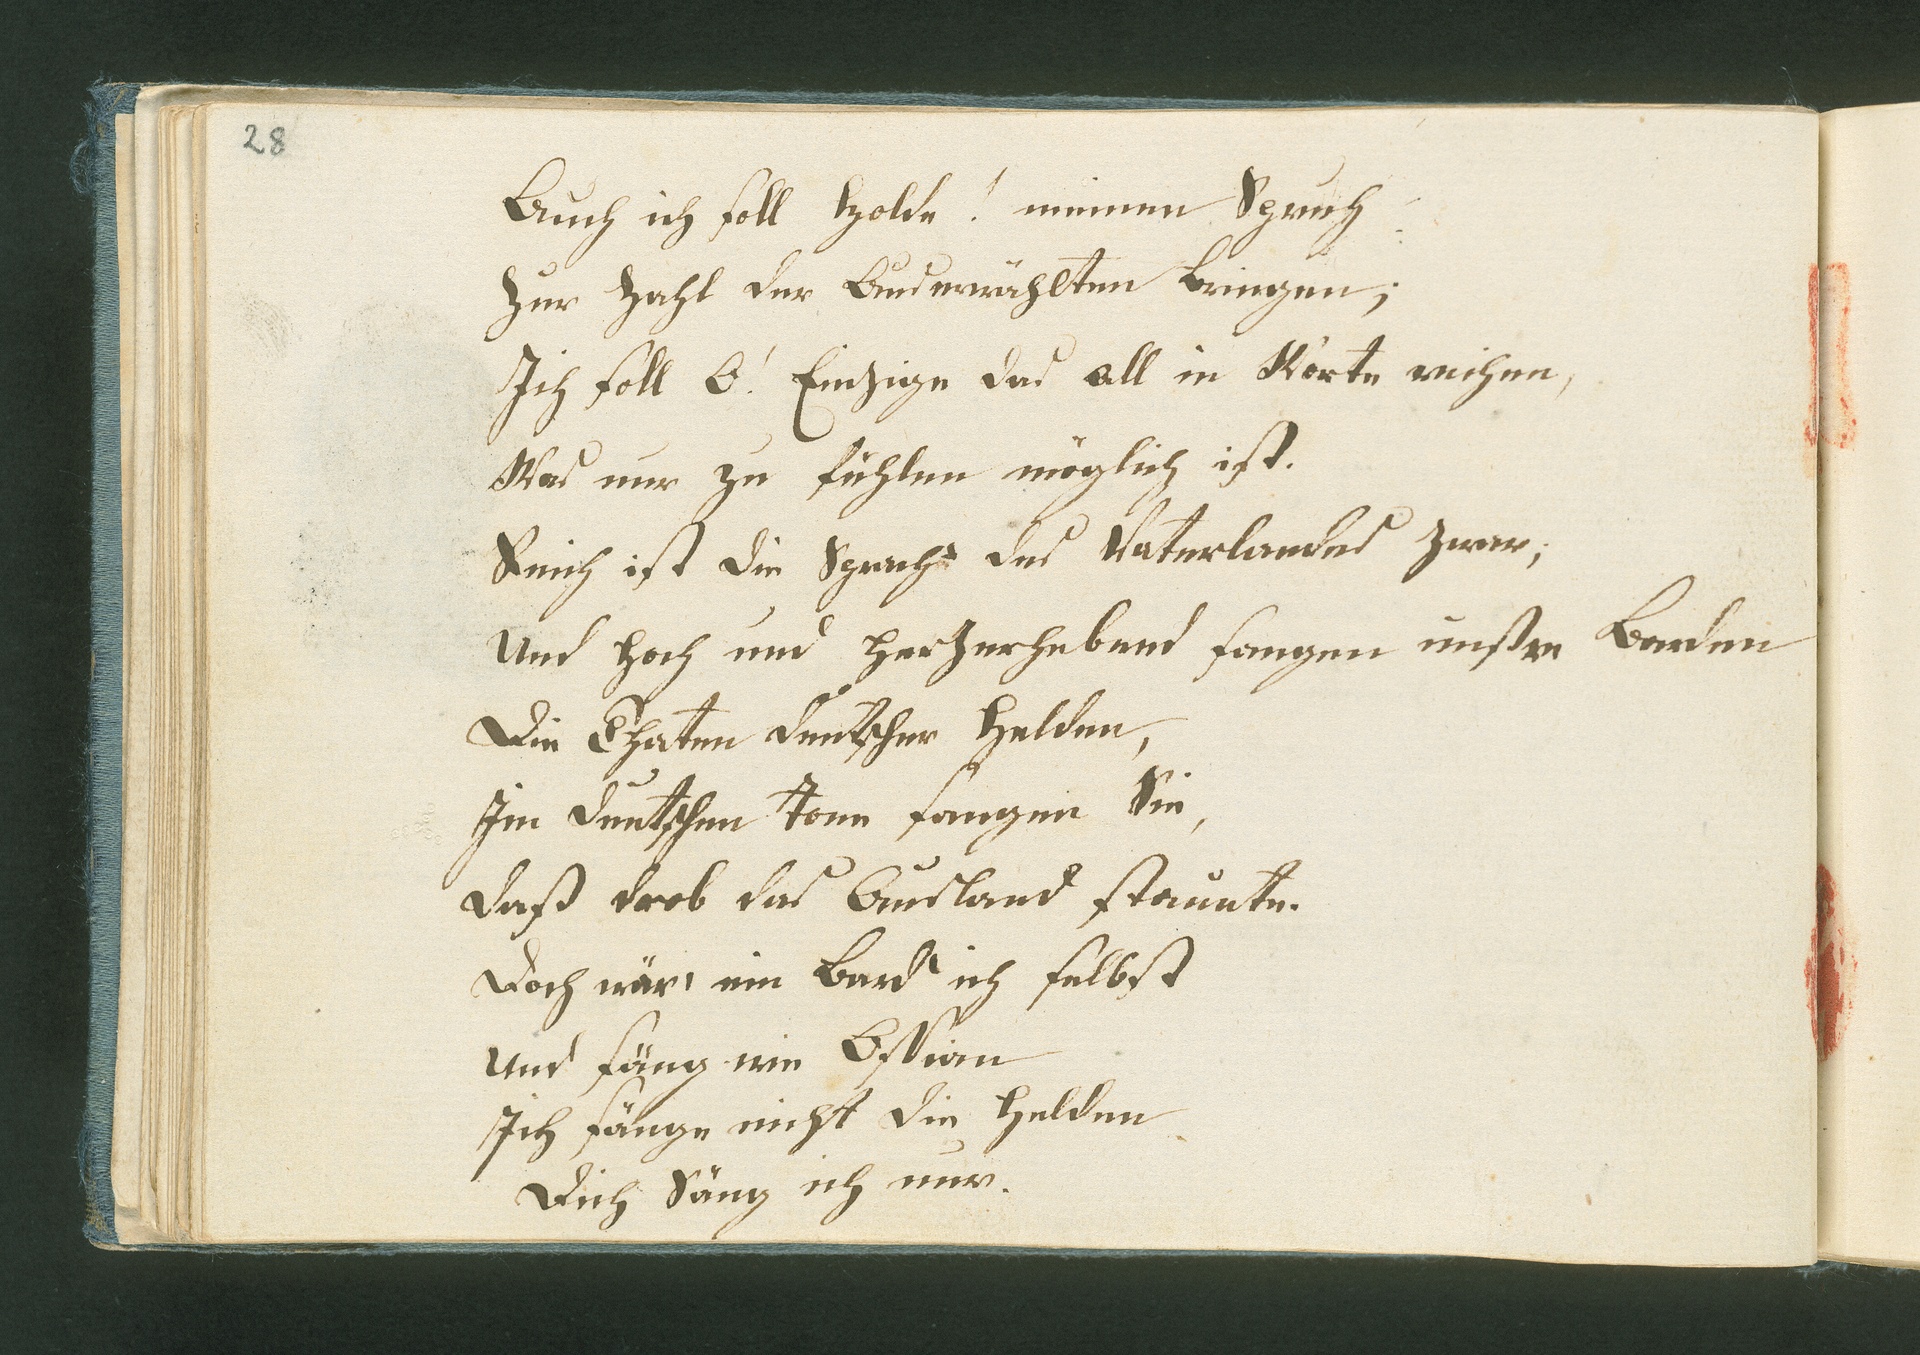 28
Auch ich soll Holde! meinen Spruch
Zur Zahl der Auserwählten bringen;
Ich soll O! Einzige das all in Worte reihen,
Was nur zu fühlen möglich ist.
Reich ist die Sprache des Vaterlandes zwar;
Und hoch und herzerhebend sangen unsre Barden
Die Thaten deutscher Helden,
Im deutschen Tone sangen Sie,
Daß drob das Ausland staunte.
Doch wär' ein Bard' ich selbst
Und säng wie Ossian
Ich sänge nicht die Helden
Dich Säng ich nur.